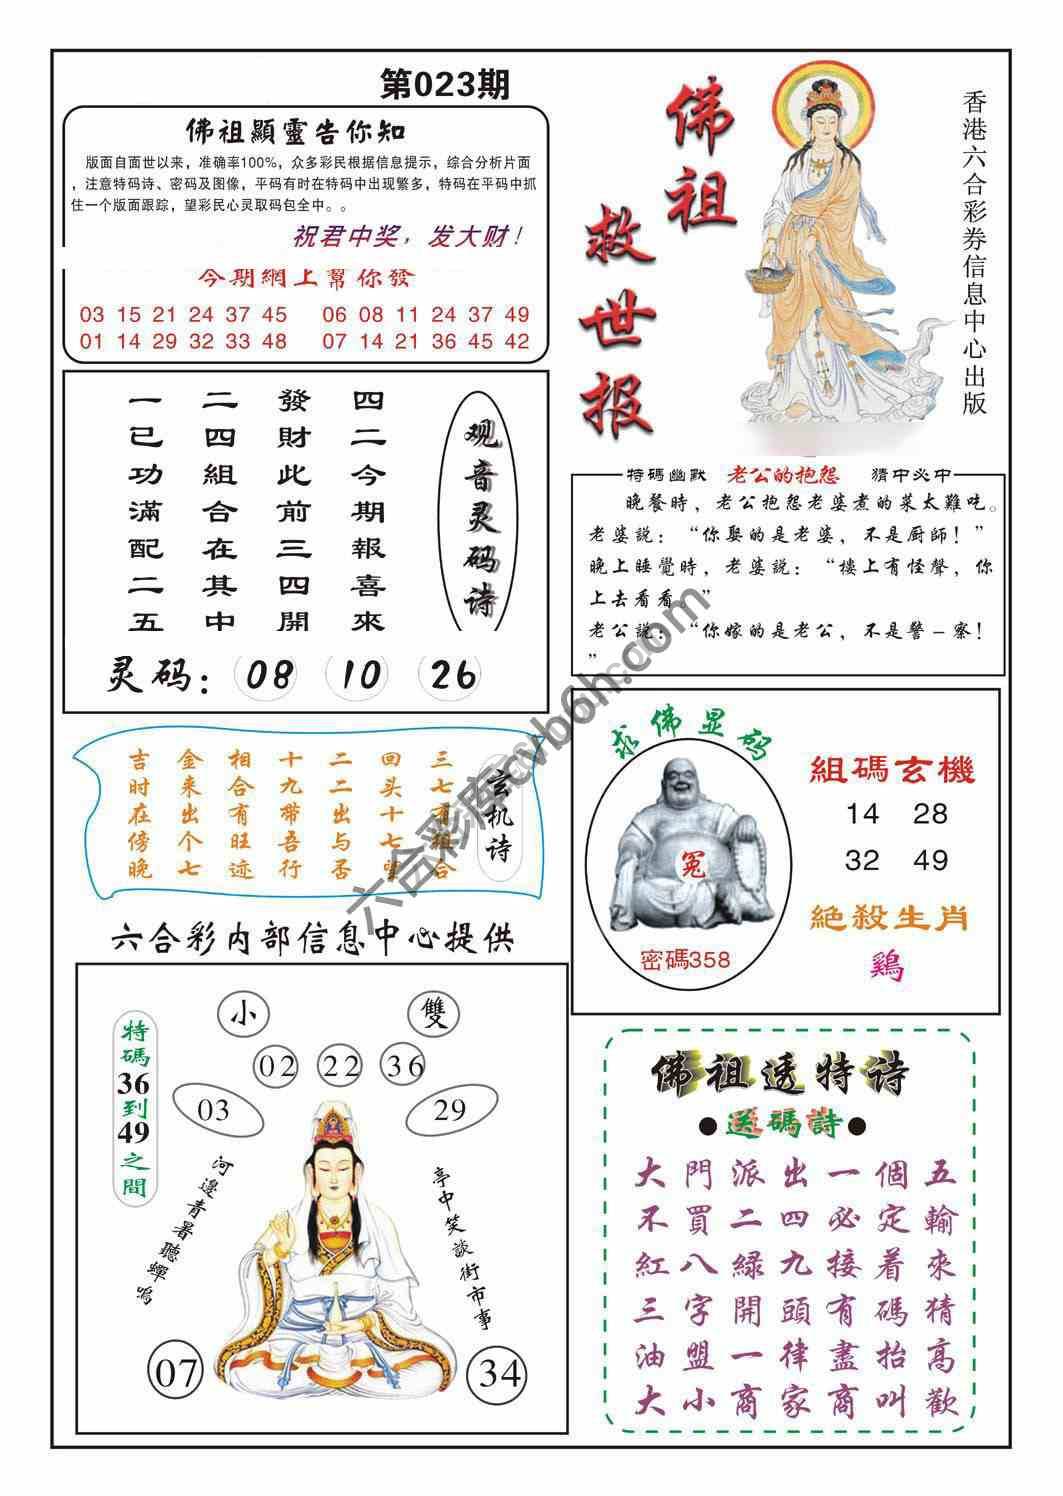 第023期
佛祖顯靈告你知
版面自面世以来，准确率100%，众多彩民根据信息提示，综合分析片面
，注意特码诗、密码及图像，平码有时在特码中出现繁多，特码在平码中抓
住一个版面跟踪，望彩民心灵取码包全中。。
祝君中奖，发大财！
今期網上幫你發
03 15 21 24 37 45 06 08 11 24 37 49
01 14 29 32 33 48 07 14 21 36 45 42
佛祖救世报
香港六合彩券信息中心出版
观音灵码诗
四二今期報喜來
發財此前三四開
二四組合在其中
一已功滿配二五
灵码：08 10 26
特碼幽默 老公的抱怨 猜中必中
晚餐時，老公抱怨老婆煮的菜太難吃。
老婆説：“你娶的是老婆，不是厨師！”
晚上睡覺時，老婆説：“樓上有怪聲，你
上去看看。”
老公説：“你嫁的是老公，不是警－察！
”
玄机诗
三七有组合
回头十七望
二二出与否
十九带吾行
相合有旺迹
金来出个七
吉时在傍晚
求佛显码
冤
密碼358
組碼玄機
14 28
32 49
絕殺生肖
鷄
六合彩内部信息中心提供
特碼36到49之間
小 雙
02 22 36
03 29
河邊青暑聽蟬鳴
亭中笑談街市事
07 34
佛祖透特诗
●送碼詩●
大門派出一個五
不買二四必定輸
紅八緑九接着來
三字開頭有碼猜
油盟一律盡抬高
大小商家商叫歡
六合彩库cvb6h.com